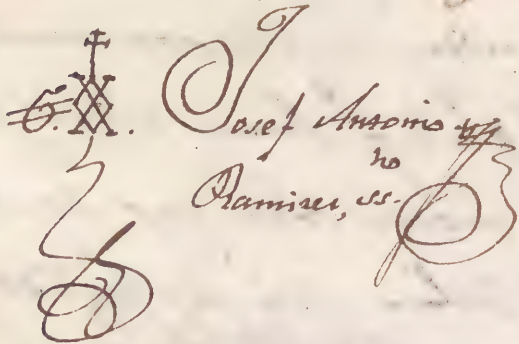 Josef Antonio
no
Ramirez, ss.